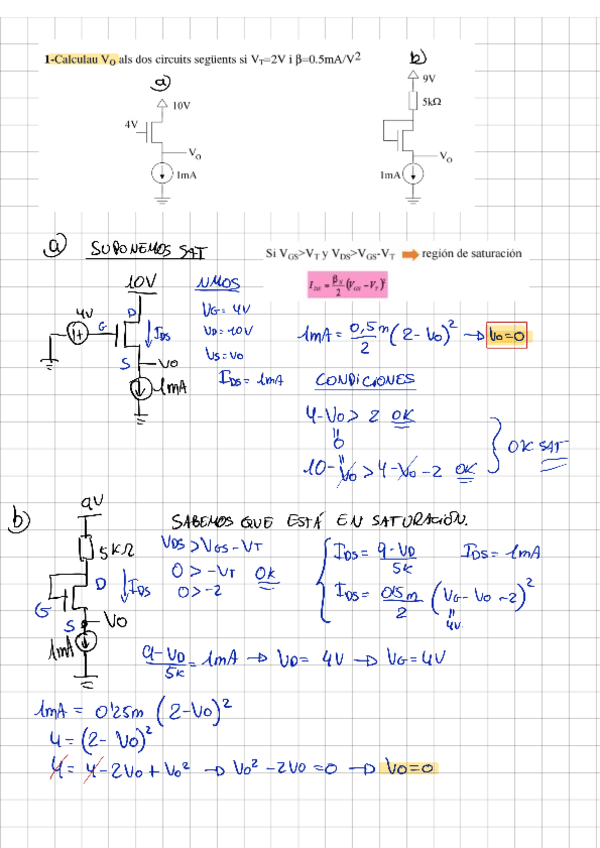 1-Calculau VO als dos circuits següents si VT=2V i β=0.5mA/V2
a)
10V
4V
VO
1mA
b)
9V
5kΩ
VO
1mA
a) SUPONEMOS SAT
Si VGS>VT y VDS>VGS-VT ➡ región de saturación
IDS = βN/2 (VGS - VT)²
10V
4V
G
D
IDS
S
VO
1mA
NMOS
VG = 4V
VD = 10V
VS = VO
IDS = 1mA
1mA = 0,5m/2 (2 - VO)² → VO=0
CONDICIONES
4-VO > 2 OK
0
10-VO > 4-VO-2 OK
OK SAT
b)
9V
5KΩ
D
IDS
G
S
VO
1mA
SABEMOS QUE ESTÁ EN SATURACIÓN.
VDS > VGS - VT
0 > -VT OK
0 > -2
IDS = 9-VD/5k
IDS = 1mA
IDS = 0'5m/2 (VG - VO - 2)²
4V
9-VD/5k = 1mA → VD = 4V → VG = 4V
1mA = 0'25m (2-VO)²
4 = (2- VO)²
4 = 4 - 2VO + VO² → VO² - 2VO = 0 → VO=0